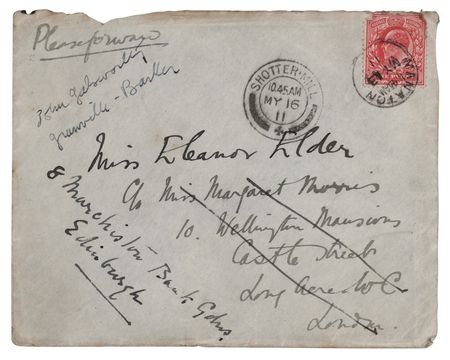 Please forward
John Galsworthy
Granville-Barker
SHOTTER-MILL
10.45AM
MY 16
11
MANATON
Miss Eleanor Elder
c/o Miss Margaret Morris
10. Wellington Mansions
Castle Street
Long Acre W.C.
London.
8 Merchiston Bank Gdns.
Edinburgh